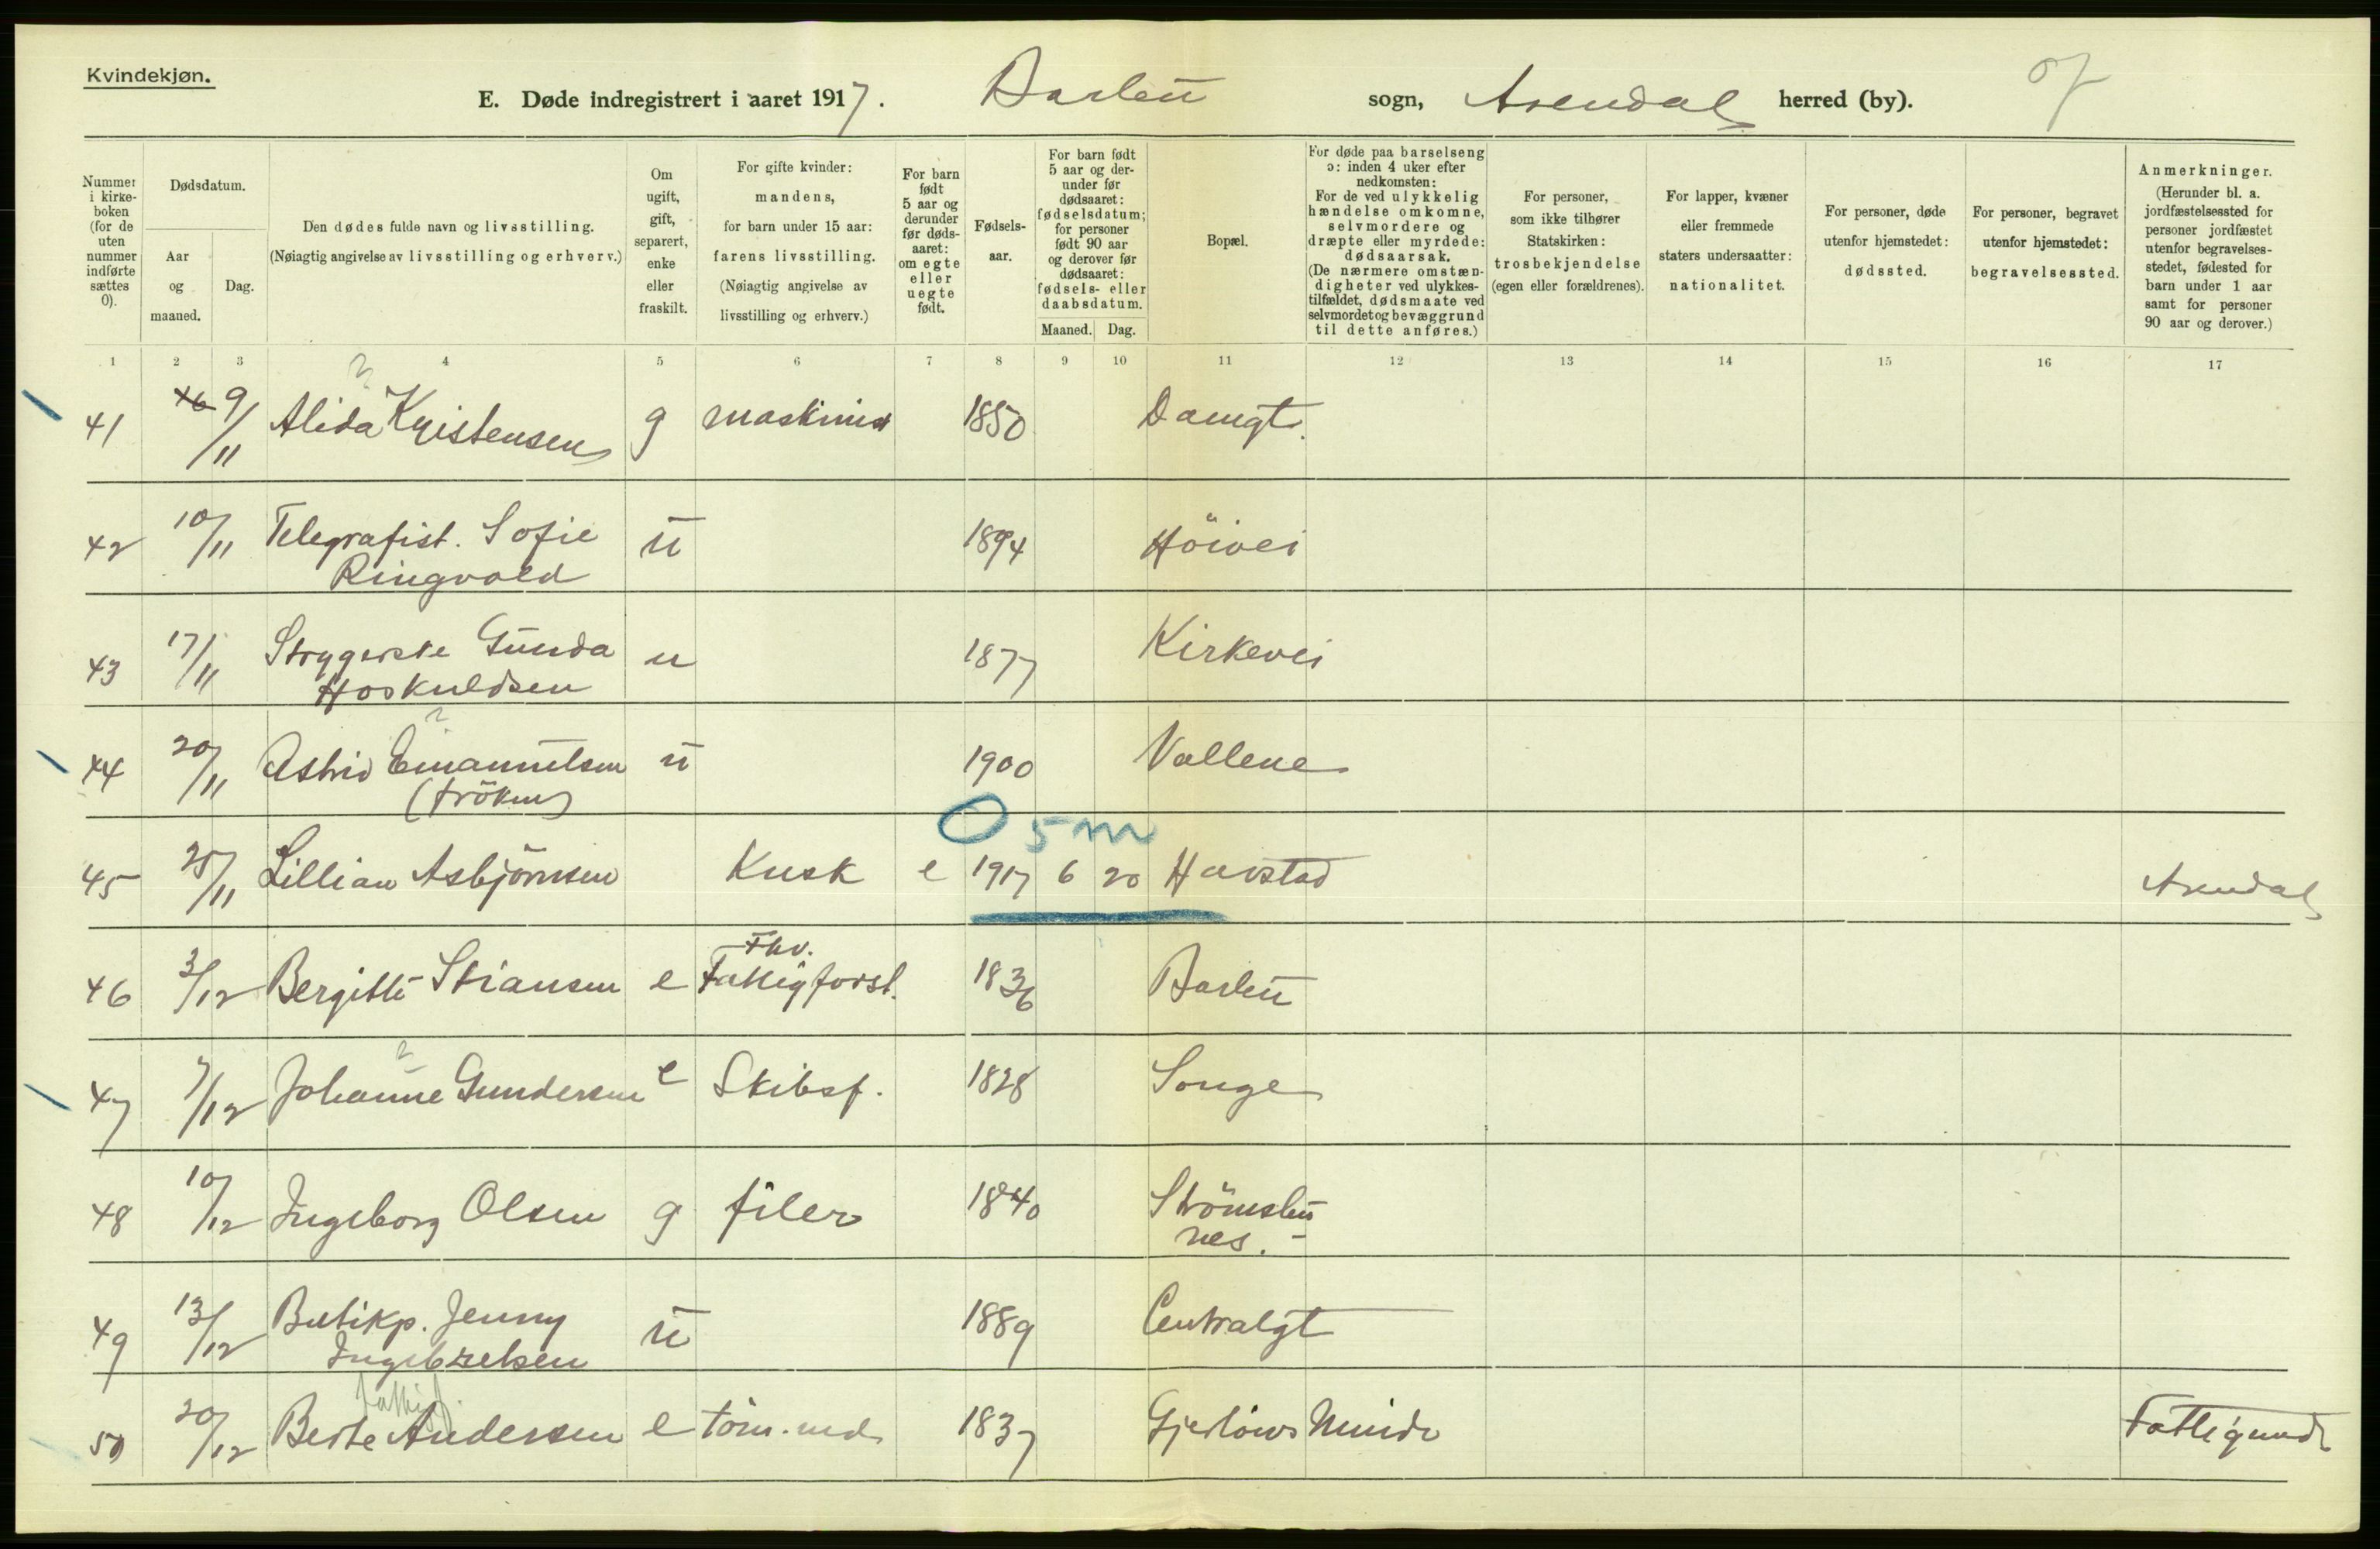 Kvindekjøn.
E. Døde indregistrert i aaret 1917. Barbu sogn, Arendal herred (by). 
Nummer i kirkeboken (for de uten nummer indførte sættes 0).
Dødsdatum.
Aar og maaned.
Dag.
Den dødes fulde navn og livsstilling.
(Nøiagtig angivelse av livsstilling og erhverv.)
Om ugift, gift, separert, enke eller fraskilt.
For gifte kvinder: mandens, for barn under 15 aar: farens livsstilling.
(Nøiagtig angivelse av livsstilling og erhverv.)
For barn født 5 aar og derunder før dødsaaret: om egte eller uegte født.
Fødselsaar.
For barn født 5 aar og derunder før dødsaaret: fødselsdatum; for personer født 90 aar og derover før dødsaaret: fødsels- eller daabsdatum.
Maaned. Dag.
Bopæl.
For døde paa barselseng ɔ: inden 4 uker efter nedkomsten: For de ved ulykkelig hændelse omkomne, selvmordere og dræpte eller myrdede: dødsaarsak.
(De nærmere omstændigheter ved ulykkestilfældet, dødsmaate ved selvmordet og bevæggrund til dette anføres.)
For personer, som ikke tilhører Statskirken: trosbekjendelse (egen eller forældrenes).
For lapper, kvæner eller fremmede staters undersaatter: nationalitet.
For personer, døde utenfor hjemstedet: dødssted.
For personer, begravet utenfor hjemstedet: begravelsessted.
Anmerkninger.
(Herunder bl. a. jordfæstelsessted for personer jordfæstet utenfor begravelsesstedet, fødested for barn under 1 aar samt for personer 90 aar og derover.)
1 2 3 4 5 6 7 8 9 10 11 12 13 14 15 16 17
41 9/11 Alida Kristensen g maskinist 1850 Damgt.
42 10/11 Telegrafist. Sofie Ringvold u 1894 Höivei
43 17/11 Strygerske Gunda Hoskuldsen u 1877 Kirkevei
44 20/11 Astrid Emanuelsen (fröken) u 1900 Vollene
0 5 m
45 25/11 Lillian Asbjörnsen Kusk e 1917 6 20 Havstad Arendal
46 3/12 Bergitte Stiansen e Fhv. Fattigforst. 1836 Barbu
47 7/12 Johanne Gundersen e Skibsf. 1828 Songe
48 10/12 Ingeborg Olsen g filer 1840 Strömsbu nes.
49 13/12 Butikp. Jenny Ingebretsen u 1889 Centralgt
50 20/12 Berte Andersen e töm.md. 1837 Gjerlöws Minde Fattigund.